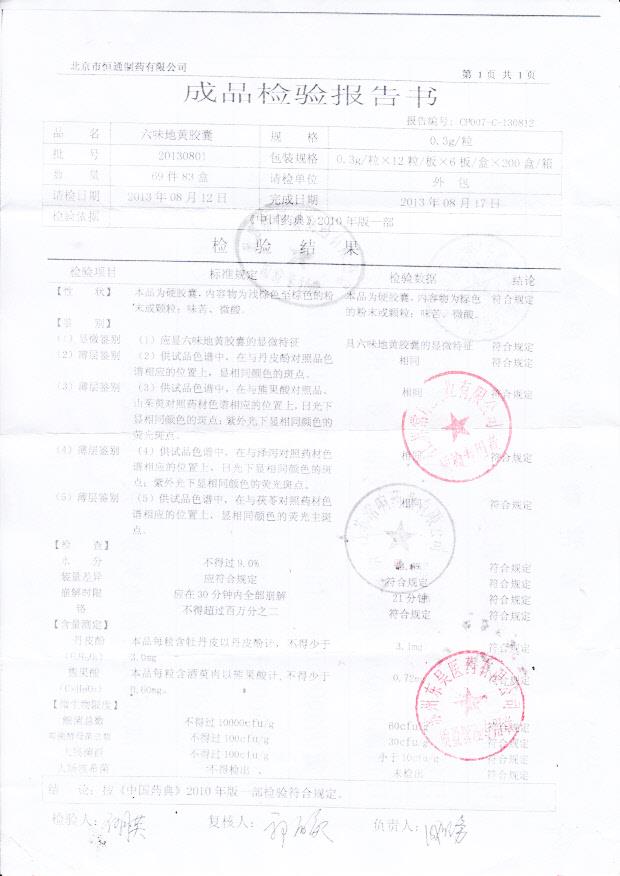 北京市恒通制药有限公司
第 1 页 共 1 页
成品检验报告书
报告编号：CP007-C-130812
品 名 六味地黄胶囊 规 格 0.3g/粒
批 号 20130801 包装规格 0.3g/粒×12粒/板×6板/盒×200盒/箱
数 量 69 件 83 盒 请检单位 外 包
请检日期 2013 年 08 月 12 日 完成日期 2013 年 08 月 17 日
检验依据 《中国药典》2010 年版一部
检 验 结 果
检验项目 标准规定 检验数据 结论
【性 状】 本品为硬胶囊，内容物为浅棕色至棕色的粉 本品为硬胶囊，内容物为棕色 符合规定
末或颗粒；味苦、微酸。 的粉末或颗粒；味苦、微酸。
【鉴 别】
（1）显微鉴别 （1）应显六味地黄胶囊的显微特征 具六味地黄胶囊的显微特征 符合规定
（2）薄层鉴别 （2）供试品色谱中，在与丹皮酚对照品色 相同 符合规定
谱相应的位置上，显相同颜色的斑点。
（3）薄层鉴别 （3）供试品色谱中，在与熊果酸对照品、 相同 符合规定
山茱萸对照药材色谱相应的位置上，日光下
显相同颜色的斑点；紫外光下显相同颜色的
荧光斑点。
（4）薄层鉴别 （4）供试品色谱中，在与泽泻对照药材色 相同 符合规定
谱相应的位置上，日光下显相同颜色的斑
点；紫外光下显相同颜色的荧光斑点。
（5）薄层鉴别 （5）供试品色谱中，在与茯苓对照药材色 相同 符合规定
谱相应的位置上，显相同颜色的荧光主斑
点。
【检 查】
水 分 不得过 9.0% 符合规定
装量差异 应符合规定 符合规定 符合规定
崩解时限 应在 30 分钟内全部崩解 21 分钟 符合规定
铬 不得超过百万分之二 符合规定 符合规定
【含量测定】
丹皮酚 本品每粒含牡丹皮以丹皮酚计，不得少于 3.1mg 符合规定
3.0mg
熊果酸 本品每粒含酒萸肉以熊果酸计，不得少于 符合规定
0.60mg。
【微生物限度】
细菌总数 不得过 10000cfu/g 60cfu/g 符合规定
霉菌酵母菌总数 不得过 100cfu/g 30cfu/g 符合规定
大肠菌群 不得过 100cfu/g 小于 10cfu/g 符合规定
不得检出 未检出 符合规定
结 论：按《中国药典》2010 年版一部检验符合规定。
检验人： 复核人： 负责人：